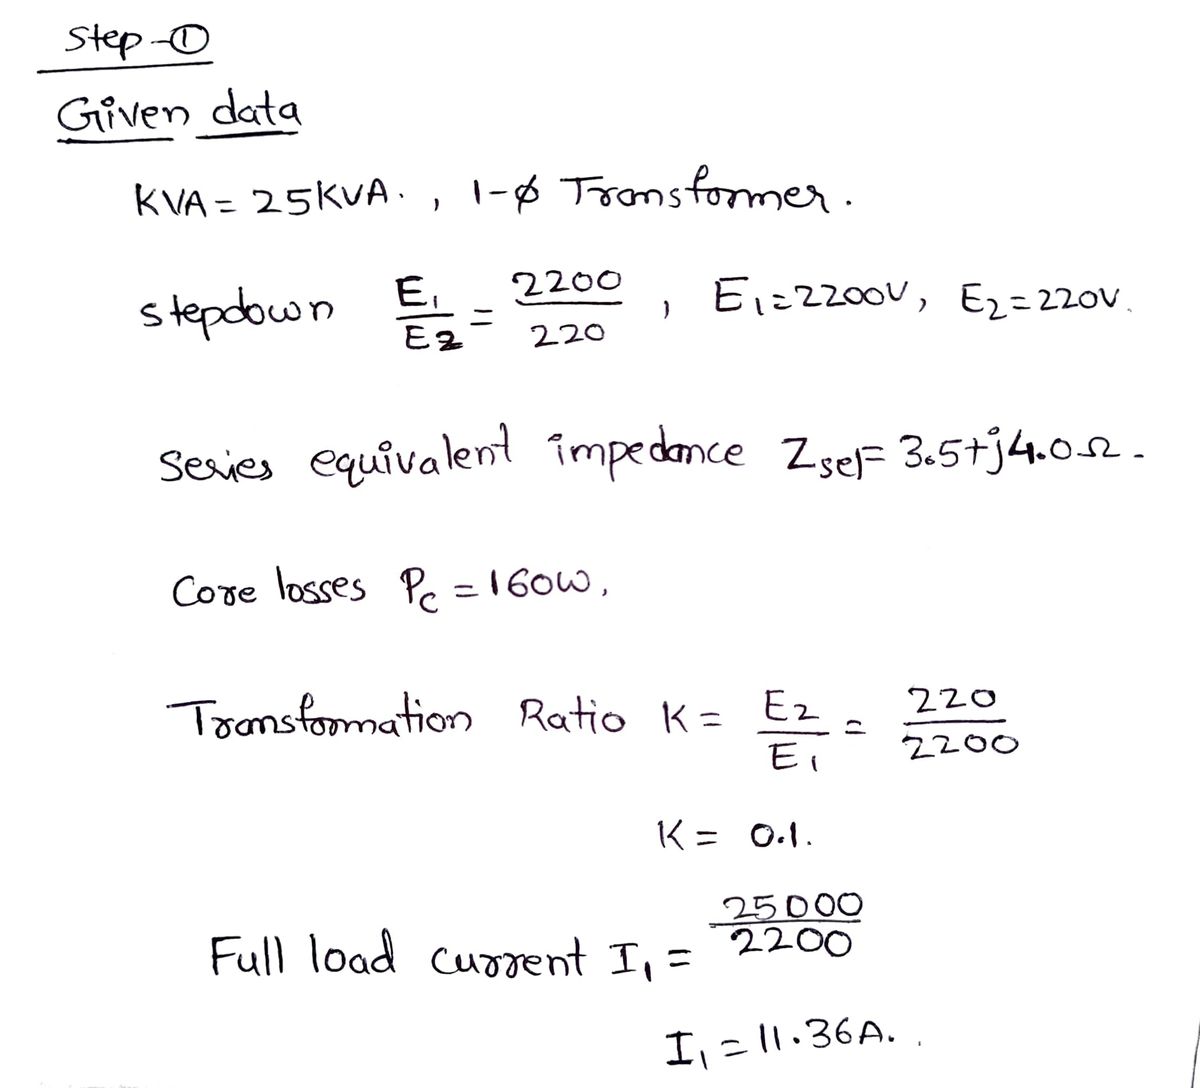 Step-①
Given data
KVA = 25KVA. , 1-ϕ Transformer.
stepdown E₁/E₂ = 2200/220 , E₁=2200V, E₂=220V.
Series equivalent impedance Zse1= 3.5+j4.0Ω.
Core losses Pc = 160W,
Transformation Ratio K = E₂/E₁ = 220/2200
K = 0.1.
Full load current I₁ = 25000/2200
I₁ = 11.36A.